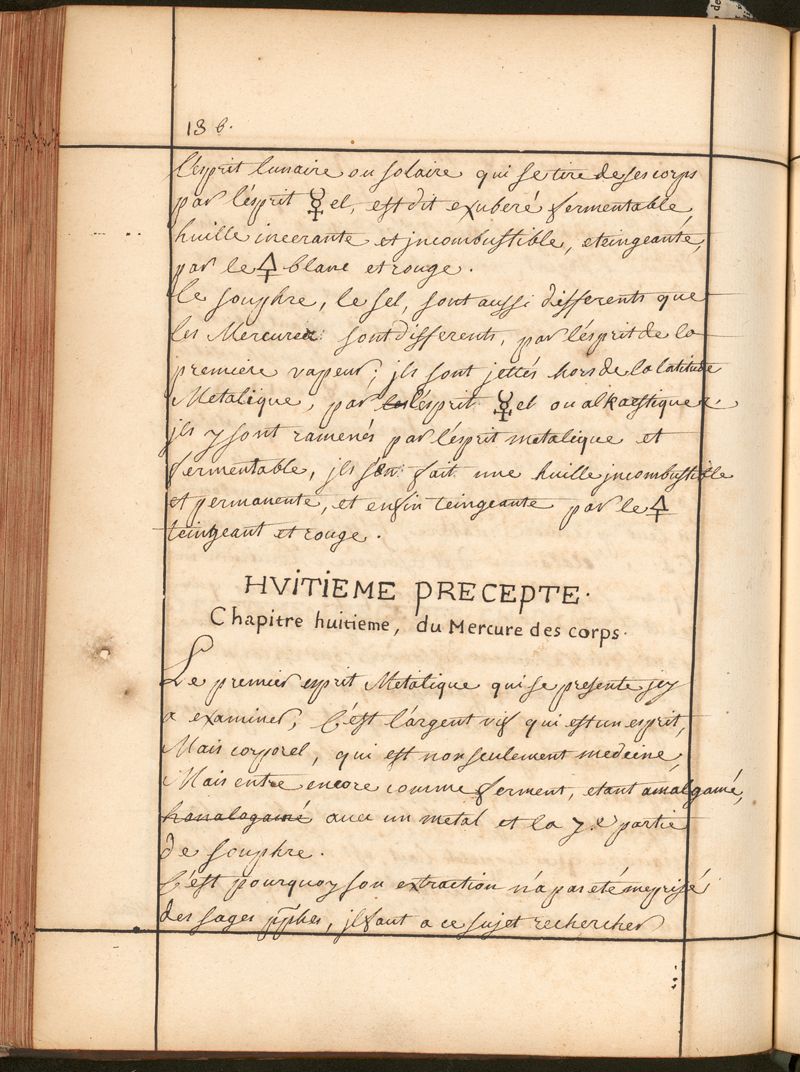 136.
l'esprit lunaire ou solaire qui se tire de ses corps
par l'esprit ☿el, est dit exuberé fermentable,
huille incerante et jncombustible, eteingeante,
par le 🜍 blanc et rouge.
Le souphre, le sel, sont aussi differents que
les Mercures sont differents, par l'esprit de la
premiere vapeur; jls sont jettés hors de la latitude
Metalique, par les l'esprit ☿el ou alkaestique,
jls y sont ramenés par l'esprit metalique et
fermentable, jls s'en fait une huille jncombustible
et permanente, et enfin teingeante par le 🜍
teingeant et rouge.
HVITIEME PRECEPTE.
Chapitre huitieme, du Mercure des corps.
Le premier esprit Metalique qui se presente jcy
a examiner, C'est l'argent vif qui est un esprit,
Mais corporel, qui est non seulement medecine,
Mais entre encore comme ferment, etant amalgamé,
avec un metal et la 7.e partie
de souphre.
C'est pourquoy son extraction n'a pas eté meprisé
des sages pphes, jl faut a ce sujet rechercher